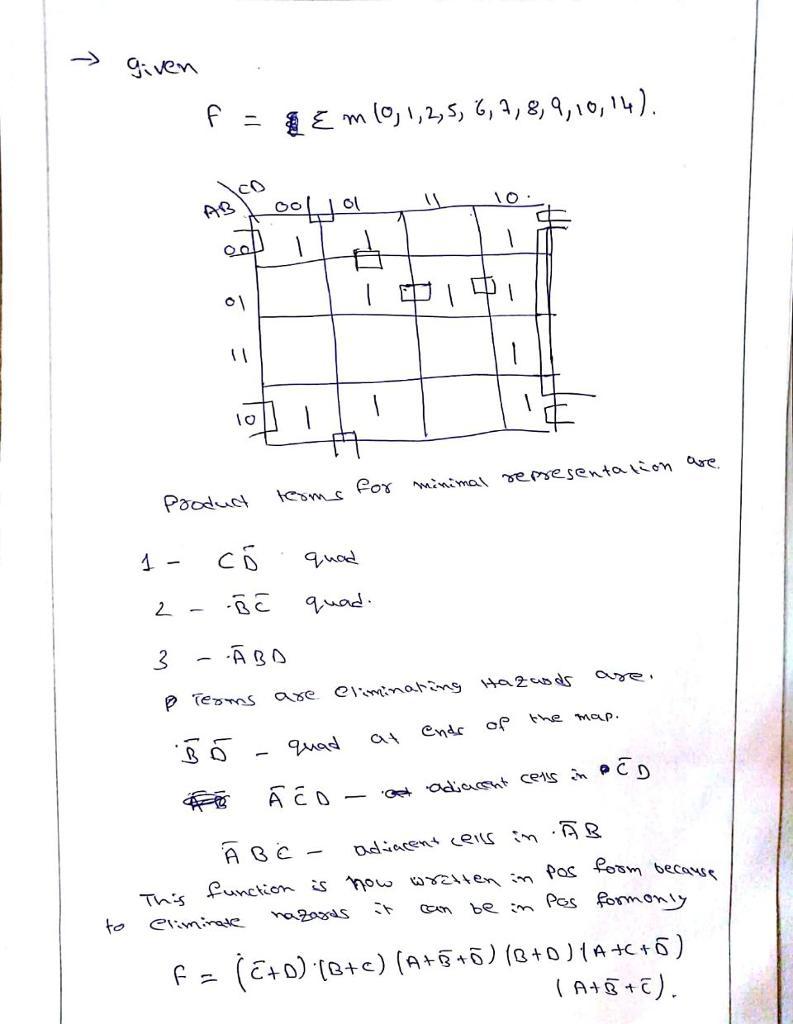 → given
f = Σ m (0, 1, 2, 5, 6, 7, 8, 9, 10, 14).
CD
AB 00 01 11 10
00 1 1 1
01 1 1 1
11 1
10 1 1 1
Product terms for minimal representation are
1 - C D̄ quad
2 - B̄ C̄ quad.
3 - Ā B D
Terms are eliminating Hazards are.
B̄ D̄ - quad at ends of the map.
Ā C̄ D - adjacent cells in C̄ D
Ā B C - adjacent cells in Ā B
This function is now written in POS form because
to eliminate hazards it can be in POS form only
f = (C̄+D) · (B+C) (A+B̄+D̄) (B+D) (A+C+D̄)
(A+B̄+C̄).